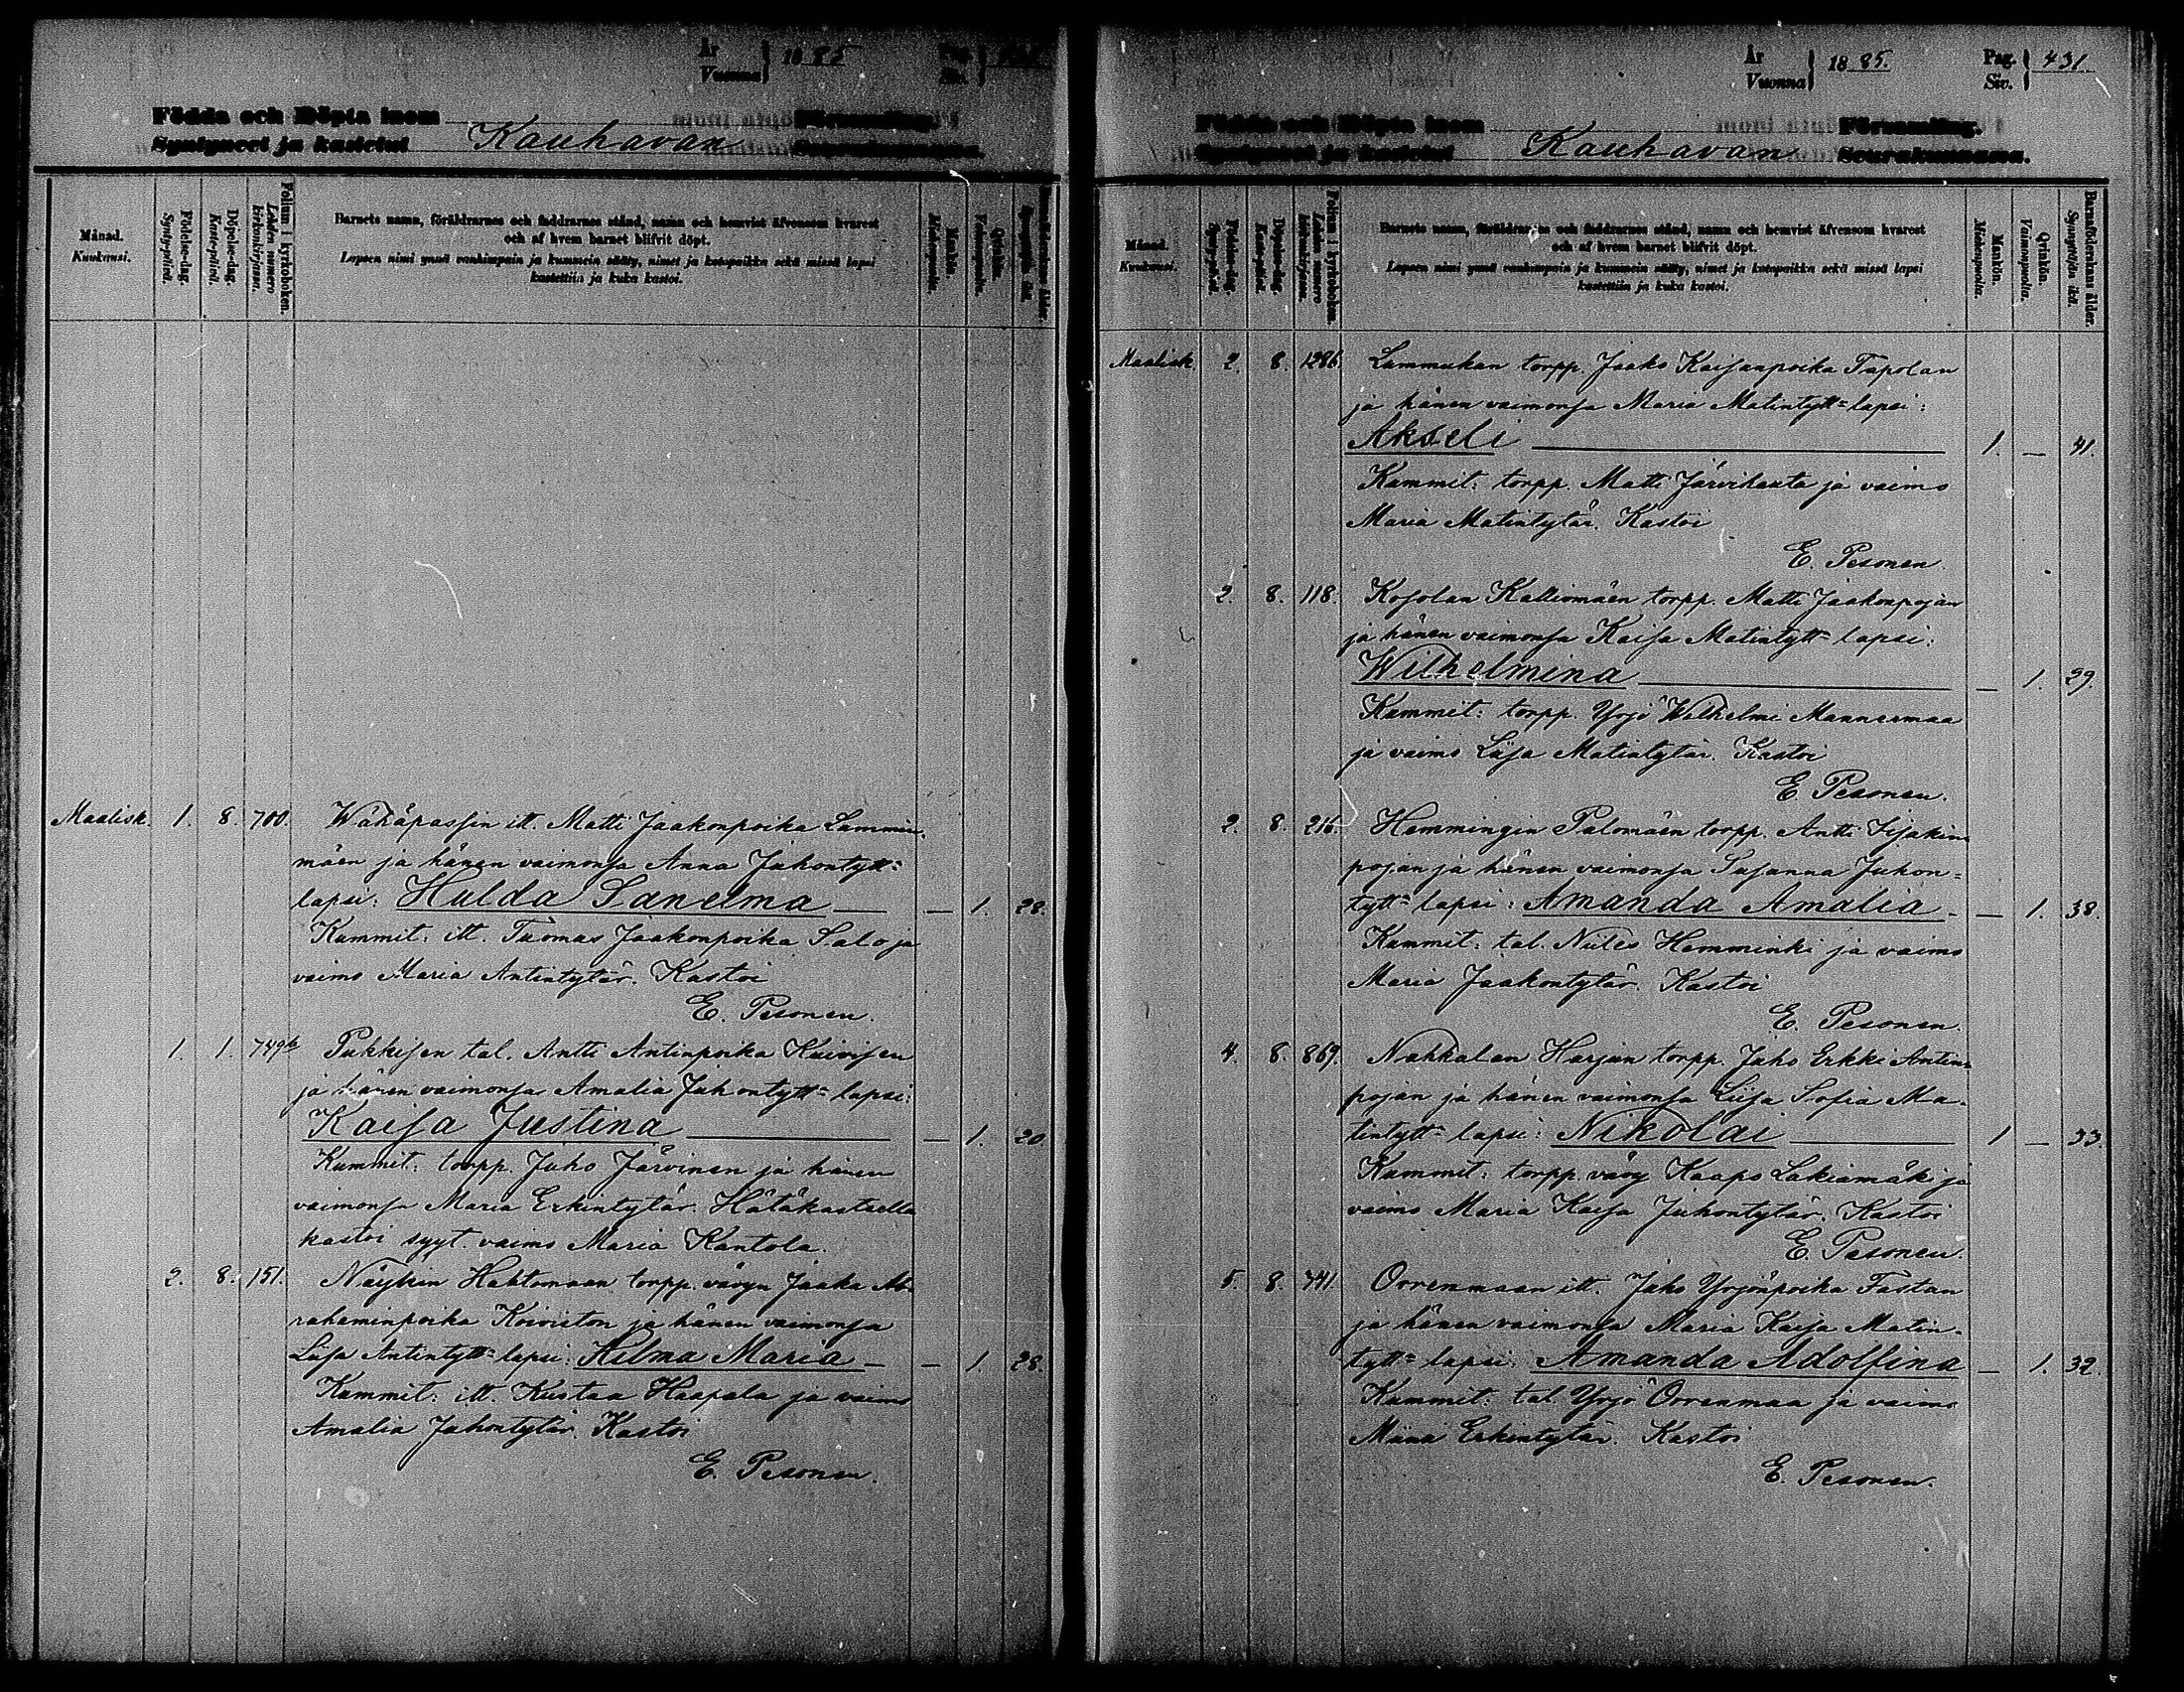 År
Vuonna } 1885
Pag.
Siv. }
Födda och Döpta inom
Syntyneet ja kastetut Kauhavan
Församling.
Seurakunnassa.
Månad.
Kuukausi.
Födelse-dag.
Synty-päivä.
Döpelse-dag.
Kaste-päivä.
Folium i kyrkoboken.
Lehden numero
kirkonkirjassa.
Barnets namn, föräldrarnes och faddrarnes stånd, namn och hemvist äfvensom hvarest
och af hvem barnet blifvit döpt.
Lapsen nimi ynnä vanhimpain ja kummein sääty, nimet ja kotopaikka sekä missä lapsi
kastettiin ja kuka kastoi.
Mankön.
Miehenpuolia.
Qvinkön.
Vaimonpuolia.
Barnaföderskans ålder.
Synnyttäjän ikä.
Maalisk. 1. 8. 700. Wähäpassin itt. Matti Jaakonpoika Lammin-
mäen ja hänen vaimonsa Anna Juhontytt=
lapsi: Hulda Sanelma — — 1. 28.
Kummit: itt. Tuomas Jaakonpoika Salo ja
vaimo Maria Antintytär. Kastoi
E. Pesonen.
1. 1. 749½ Pukkisen tal. Antti Antinpoika Kuivisen
ja hänen vaimonsa Amalia Juhontytt= lapsi:
Kaisa Justina — — 1. 20.
Kummit: torpp. Juho Järvinen ja hänen
vaimonsa Maria Erkintytär. Hätäkasteella
kastoi syyt. vaimo Maria Kantola.
2. 8. 151. Näykin Hahtomaan torpp. vävyn Jaakko Ab-
rahaminpoika Koiviston ja hänen vaimonsa
Liisa Antintytt= lapsi: Hilma Maria — — 1. 28.
Kummit: itt. Kustaa Haapala ja vaimo
Amalia Juhontytär. Kastoi
E. Pesonen.
År
Vuonna } 1885.
Pag.
Siv. } 431.
Födda och Döpta inom
Syntyneet ja kastetut Kauhavan
Församling.
Seurakunnassa.
Månad.
Kuukausi.
Födelse-dag.
Synty-päivä.
Döpelse-dag.
Kaste-päivä.
Folium i kyrkoboken.
Lehden numero
kirkonkirjassa.
Barnets namn, föräldrarnes och faddrarnes stånd, namn och hemvist äfvensom hvarest
och af hvem barnet blifvit döpt.
Lapsen nimi ynnä vanhimpain ja kummein sääty, nimet ja kotopaikka sekä missä lapsi
kastettiin ja kuka kastoi.
Mankön.
Miehenpuolia.
Qvinkön.
Vaimonpuolia.
Barnaföderskans ålder.
Synnyttäjän ikä.
Maalisk. 2. 8. 1286. Lammukan torpp. Jaako Kaisanpoika Tapolan
ja hänen vaimonsa Maria Matintytt= lapsi:
Akseli 1. — 41.
Kummit: torpp. Matti Järvihauta ja vaimo
Maria Matintytär. Kastoi
E. Pesonen.
2. 8. 118. Kosolan Kalliomäen torpp. Matti Jaakonpojan
ja hänen vaimonsa Kaisa Matintytt= lapsi:
Wilhelmina — 1. 29.
Kummit: torpp. Yrjö Wilhelmi Mannermaa
ja vaimo Liisa Matintytär. Kastoi
E. Pesonen.
2. 8. 216. Hemmingin Palomäen torpp. Antti Iisakin-
pojan ja hänen vaimonsa Susanna Juhon=
tytt= lapsi: Amanda Amalia — — 1. 38.
Kummit: tal. Niiles Hemminki ja vaimo
Maria Jaakontytär. Kastoi
E. Pesonen.
4. 8. 869. Nahkalan Harjun torpp. Juho Erkki Antin=
pojan ja hänen vaimonsa Liisa Sofia Ma-
tintytt= lapsi: Nikolai 1 — 33.
Kummit: torpp. vävy Kaapo Lakiamäki ja
vaimo Maria Kaisa Juhontytär. Kastoi
E. Pesonen.
5. 8. 741. Orrenmaan itt. Juho Yrjönpoika Fästan
ja hänen vaimonsa Maria Kaisa Matin-
tytt= lapsi: Amanda Adolfina — 1. 32.
Kummit: tal. Yrjö Orrenmaa ja vaimo
Miina Erkintytär. Kastoi
E. Pesonen.